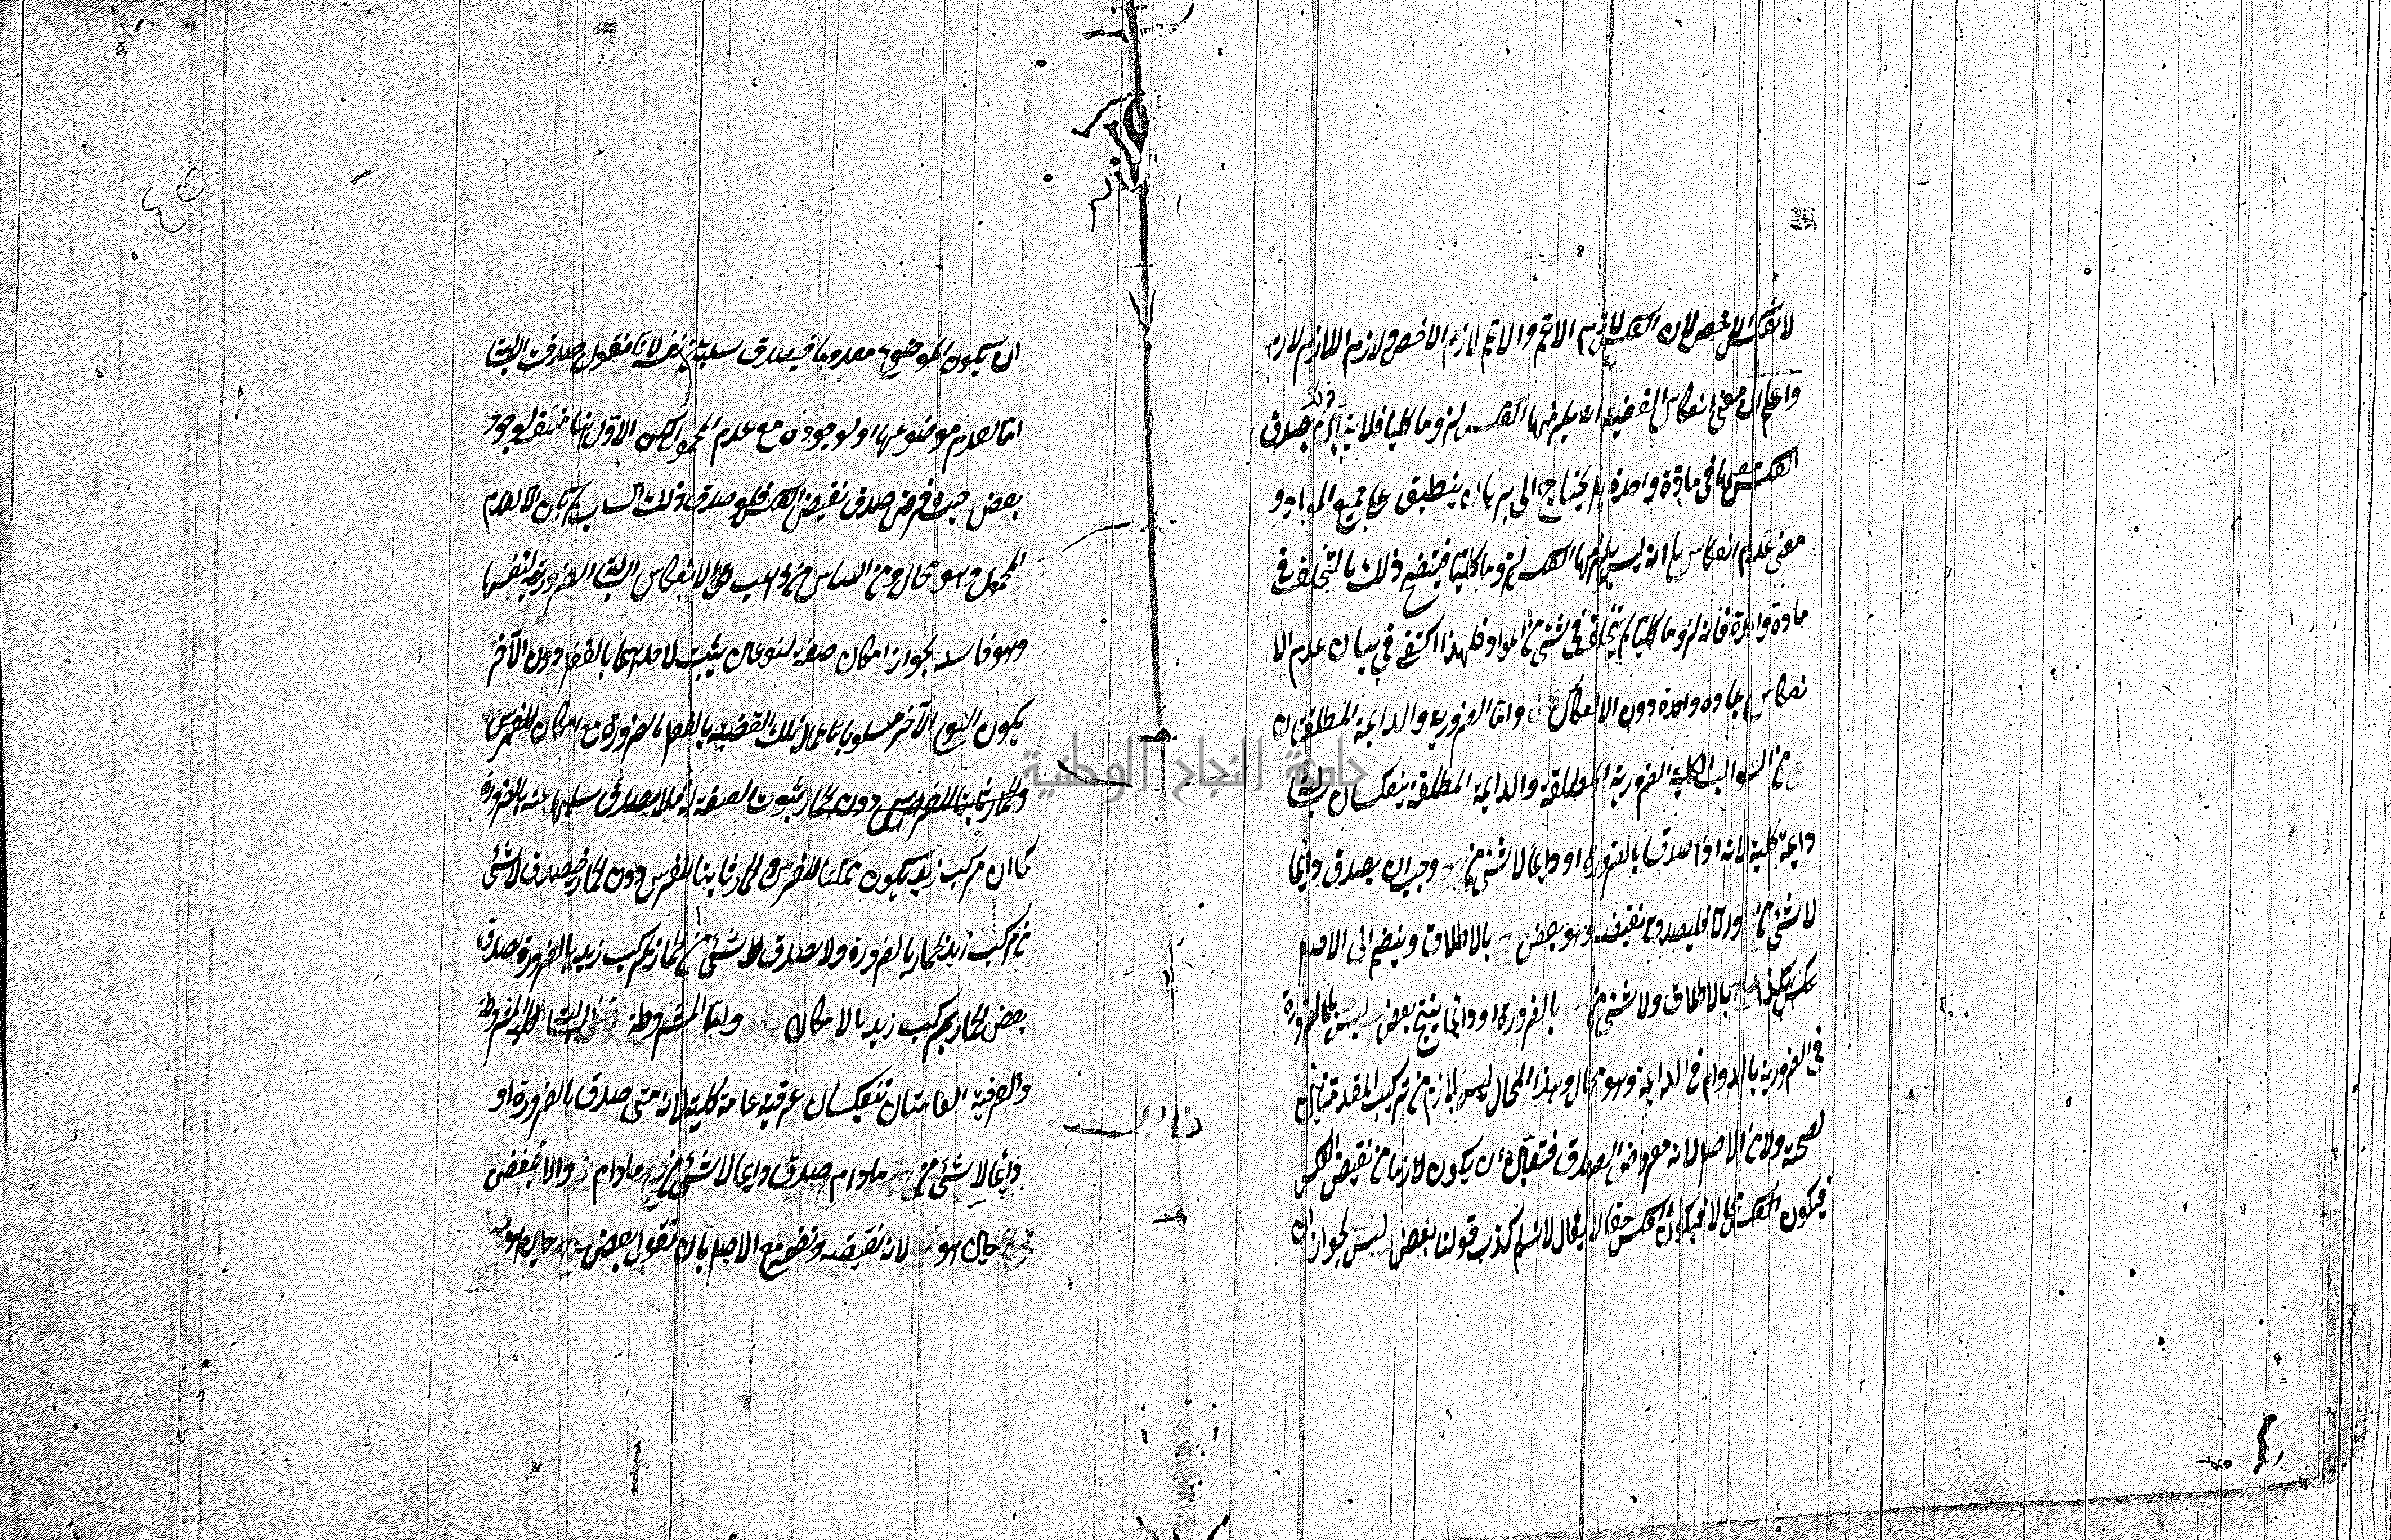 لانعكس الاخص لان العكس لازم الاعم والاعم لازم الاخص ولازم اللازم لازم
واعلم ان معنى انعكاس القضية انه يلزمها العكس لزوما كليا فلا يتبين ذلك بصدق
العكس معها في مادة واحدة بل يحتاج الى برهان ينطبق على جميع المواد و
معنى عدم انعكاسها انه ليس يلزمها العكس لزوما كليا فيتضح ذلك بالتخلف في
مادة واحدة فانه لزوما كليا لم يتخلف في شئ من المواد فلهذا اكتفى في بيان عدم الا
نعكاس بمادة واحدة دون الانعكاس واما الضرورية والدايمة المطلقتان
من السوالب الكلية الضرورية المطلقة والدايمة المطلقة ينعكسان سالبة
دايمة كلية لانه اذا صدق بالضرورة او دايما لا شئ من وجب ان يصدق دايما
لا شئ من والا فليصدق نقيضه وهو بعض بالاطلاق وينضم الى الاصل
هكذا بعض بالاطلاق ولا شئ من بالضرورة او دائما ينتج بعض ليس بالضرورة
في الضرورية بالدوام في الدايمة وهو محال وهذا المحال ليس بلازم من تركيب المقدمتين
لصحته ولا من الاصل لانه مفروض الصدق فتعين ان يكون لازما من نقيض العكس
فيكون العكس محالا فيكون العكس حقا لا يقال لا نسلم كذب قولنا بعض ليس لجواز ان
ان يكون الموضوع معدوما فيصدق سلبه عن نفسه لانا نقول صدق السالبة
اما لعدم موضوعها او لوجوده مع عدم المحمول لكن الاول هنا منتف لوجود
بعض حيث فرض صدق نقيض العكس فلو صدق ذلك السلب لم يكن الا لعدم
المحمول وهو محال ومن الناس من ذهب الى انعكاس السالبة الضرورية لنفسها
وهو فاسد لجواز امكان صفة لنوعين يثبت لاحدهما بالفعل دون الآخر
يكون النوع الآخر مسلوبا عما له تلك الصفة بالفعل بالضرورة مع امكان
دون الحمار ثبوت الصفة له فلا يصدق سلبها عنه بالضرورة
كما ان مركب زيد يكون ممكنا للفرس والحمار ثابتا للفرس دون الحمار فيصدق لا شئ
من مركب زيد بحمار بالضرورة ولا يصدق لا شئ من الحمار بمركب زيد بالضرورة لصدق
بعض الحمار بمركب زيد بالامكان واما المشروطة
والعرفية العامتان تنعكسان عرفية عامة كلية لانه متى صدق بالضرورة او
دايما لا شئ من مادام صدق دايما لا شئ من مادام والا فبعض
حين هو لانه نقيضه ونضمه مع الاصل بان نقول بعض حين هو
جامعة النجاح الوطنية
٤٥